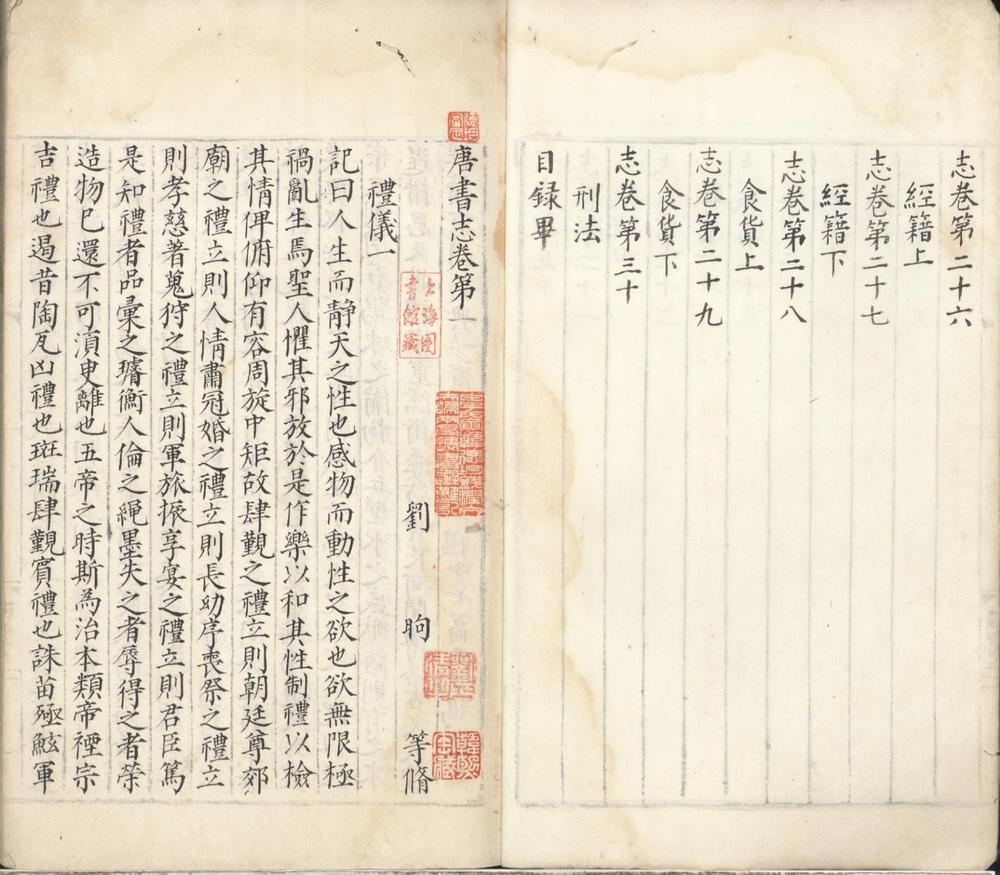 志卷第二十六
經籍上
志卷第二十七
經籍下
志卷第二十八
食貨上
志卷第二十九
食貨下
志卷第三十
刑法
目録畢
唐書志卷第一
劉 昫 等脩
上海圖書館藏
禮儀一
記曰人生而靜天之性也感物而動性之欲也欲無限極
禍亂生焉聖人懼其邪放於是作樂以和其性制禮以檢
其情俾俯仰有容周旋中矩故肆覲之禮立則朝廷尊郊
廟之禮立則人情肅冠婚之禮立則長幼序喪祭之禮立
則孝慈著蒐狩之禮立則軍旅振享宴之禮立則君臣篤
是知禮者品彙之璿衡人倫之繩墨失之者辱得之者榮
造物已還不可湏臾離也五帝之時斯為治本類帝禋宗
吉禮也遏昔陶瓦凶禮也班瑞肆覲賓禮也誅苗殛鮌軍